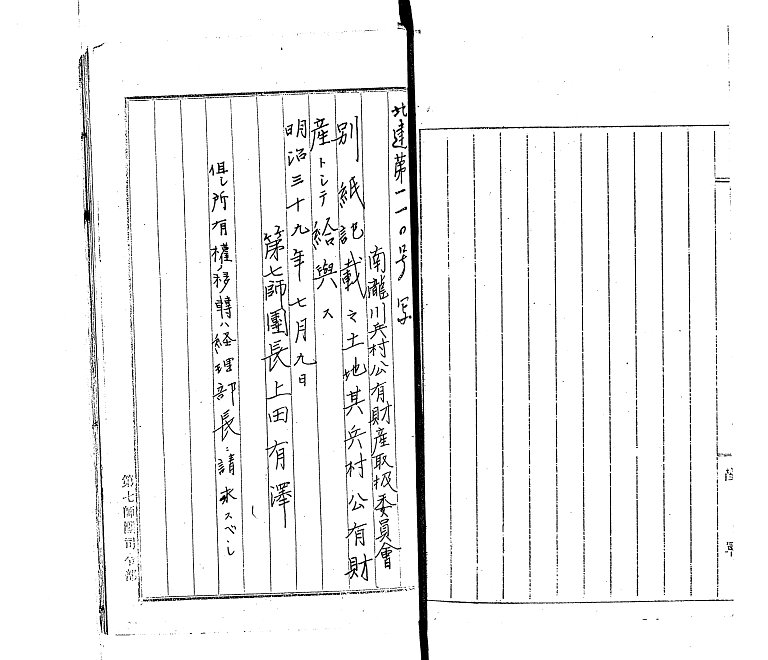 北達第二一〇号 写
南瀧川兵村公有財産取扱委員會
別紙記載之土地其兵村公有財
産トシテ給與ス
明治三十九年七月九日
第七師團長上田有澤
但シ所有權ノ移轉ハ経理部長ニ請求スベシ
第七師團司令部